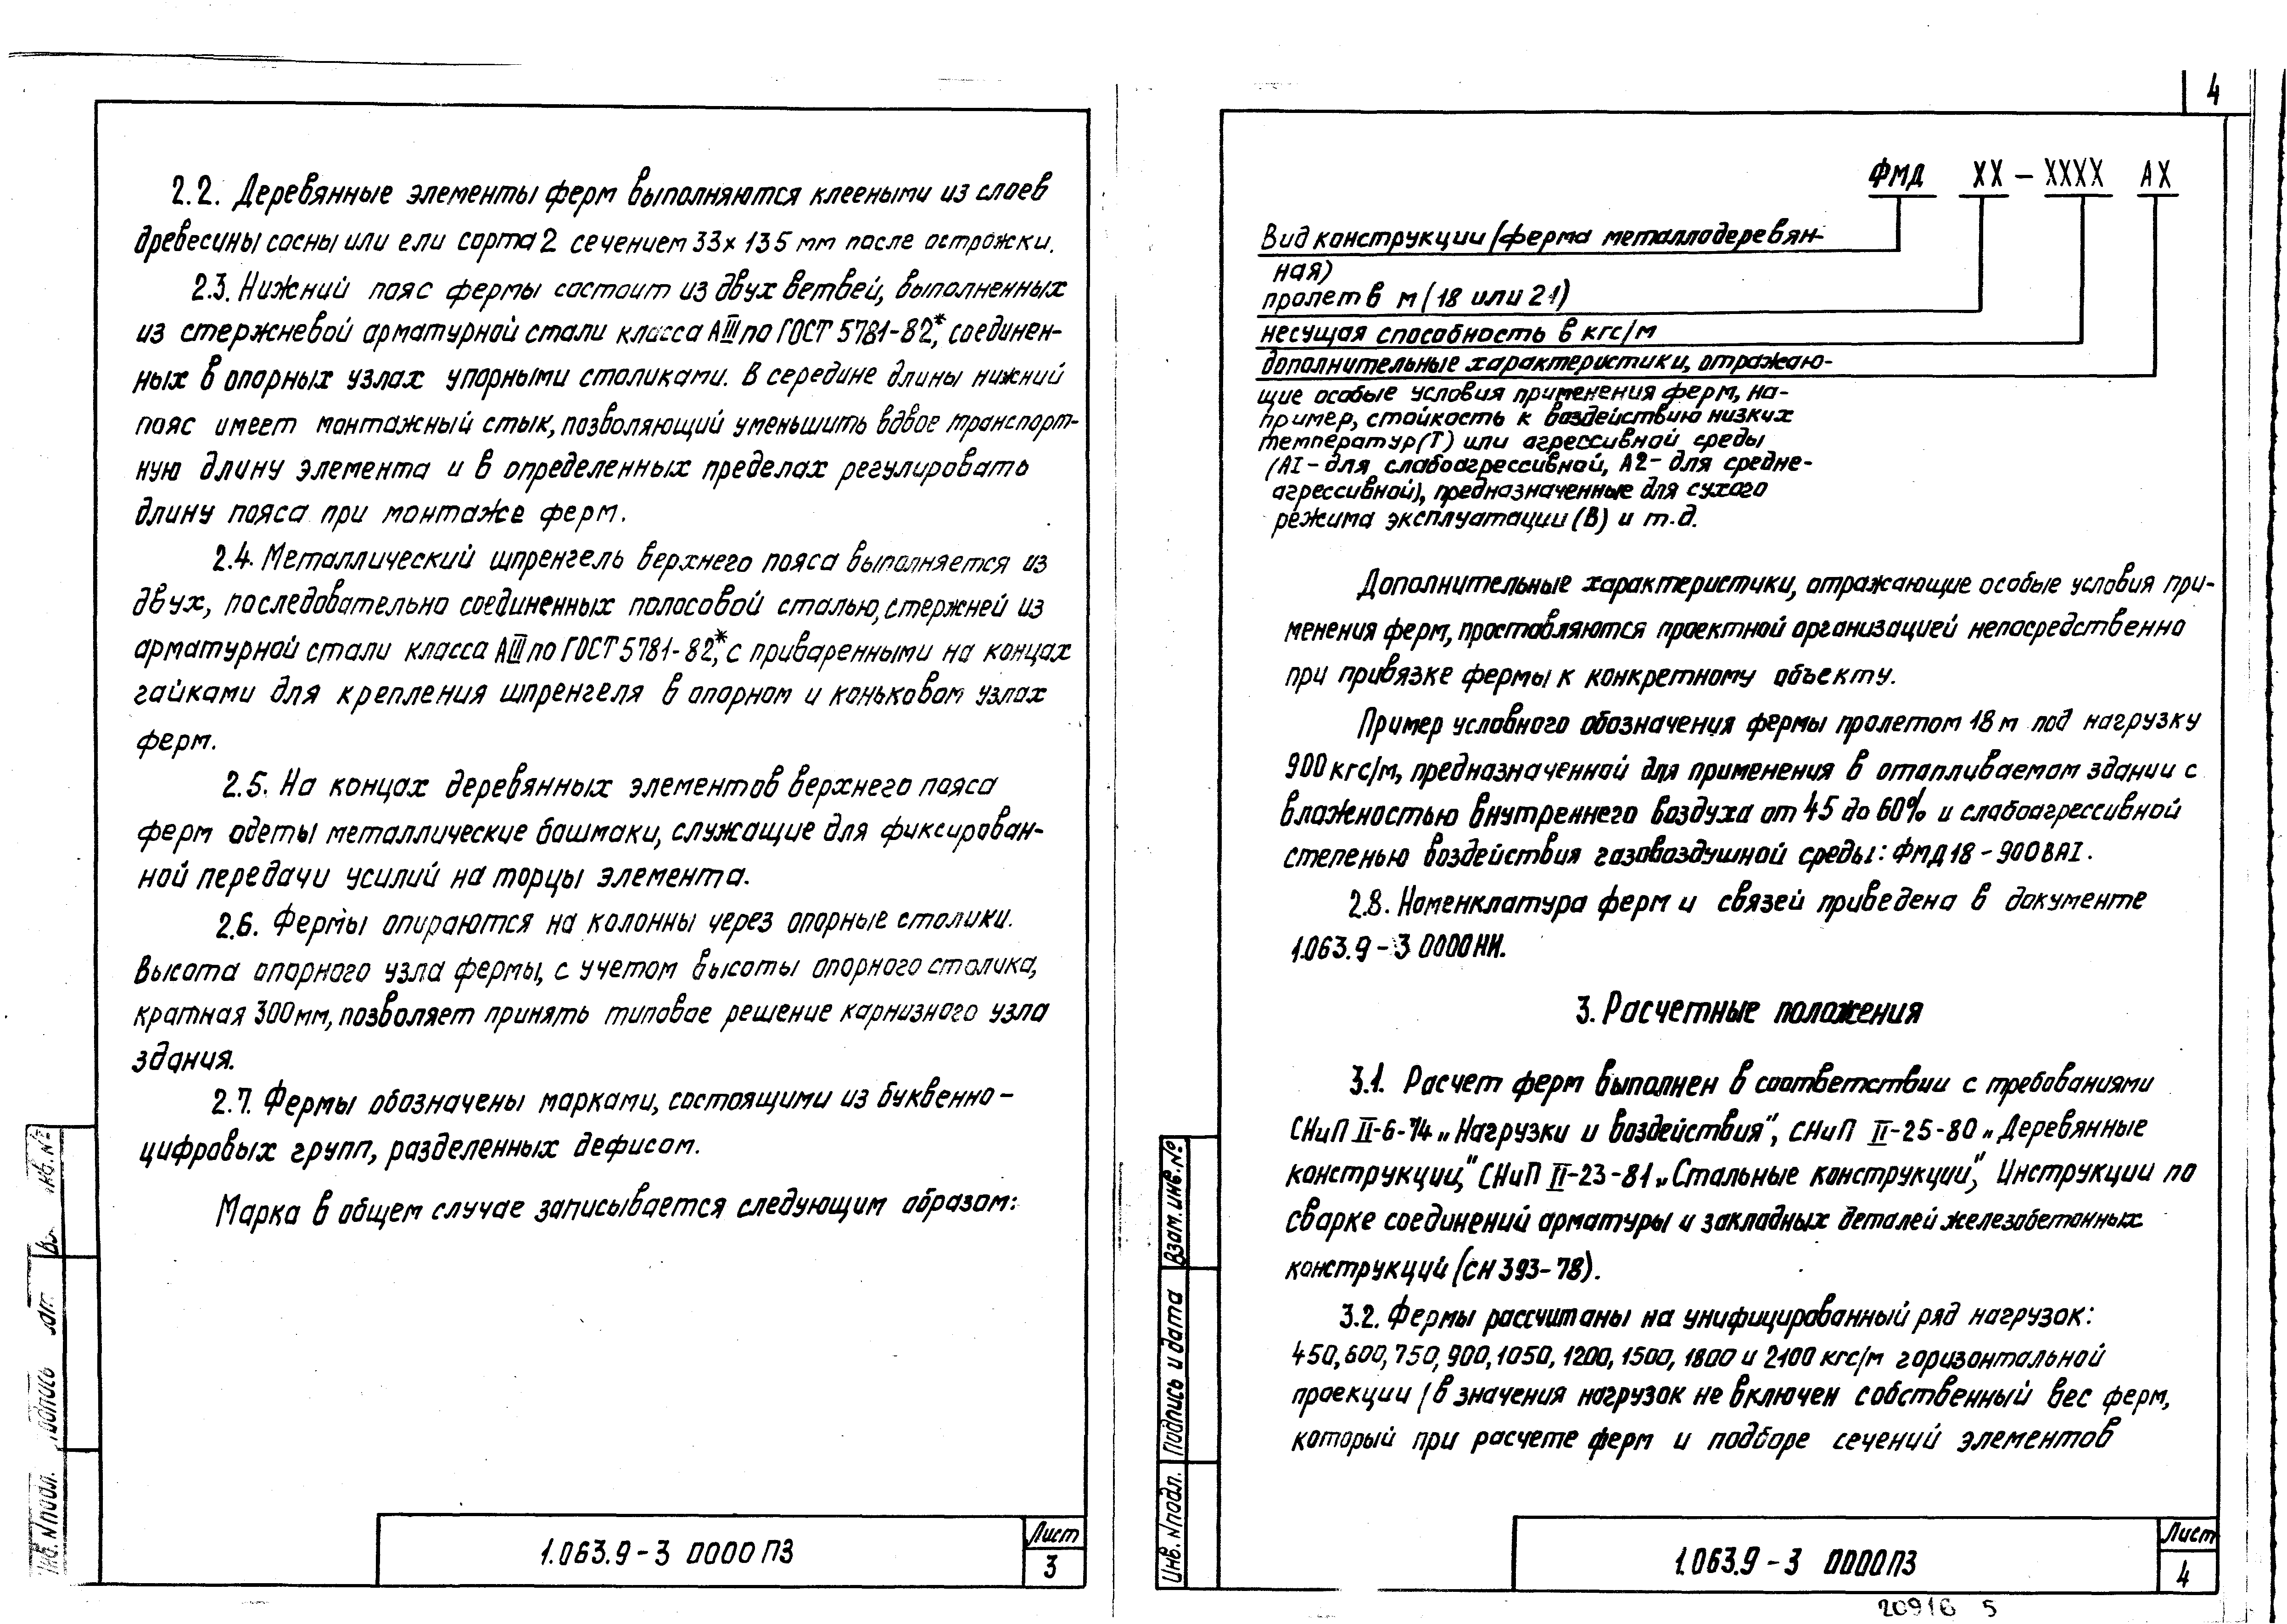 2.2. Деревянные элементы ферм выполняются клееными из слоев
древесины сосны или ели сорта 2 сечением 33х135 мм после острожки.
2.3. Нижний пояс фермы состоит из двух ветвей, выполненных
из стержневой арматурной стали класса АIII по ГОСТ 5781-82*, соединен-
ных в опорных узлах упорными столиками. В середине длины нижний
пояс имеет монтажный стык, позволяющий уменьшить вдвое транспорт-
ную длину элемента и в определенных пределах регулировать
длину пояса при монтаже ферм.
2.4. Металлический шпренгель верхнего пояса выполняется из
двух, последовательно соединенных полосовой сталью, стержней из
арматурной стали класса АIII по ГОСТ 5781-82*, с приваренными на концах
гайками для крепления шпренгеля в опорном и коньковом узлах
ферм.
2.5. На концах деревянных элементов верхнего пояса
ферм одеты металлические башмаки, служащие для фиксирован-
ной передачи усилий на торцы элемента.
2.6. Фермы опираются на колонны через опорные столики.
Высота опорного узла фермы, с учетом высоты опорного столика,
кратная 300мм, позволяет принять типовое решение карнизного узла
здания.
2.7. Фермы обозначены марками, состоящими из буквенно-
цифровых групп, разделенных дефисом.
Марка в общем случае записывается следующим образом:
Инв. №подл.
1.063.9-3 0000ПЗ
Лист
3
4
ФМД ХХ-ХХХХ АХ
Вид конструкции (ферма металлодеревян-
ная)
пролет в м (18 или 21)
несущая способность в кгс/м
дополнительные характеристики, отражаю-
щие особые условия применения ферм, на-
пример, стойкость к воздействию низких
температур (Т) или агрессивной среды
(АI- для слабоагрессивной, А2- для средне-
агрессивной), предназначенные для сухого
режима эксплуатации (В) и т.д.
Дополнительные характеристики, отражающие особые условия при-
менения ферм, проставляются проектной организацией непосредственно
при привязке фермы к конкретному объекту.
Пример условного обозначения фермы пролетом 18 м под нагрузку
900 кгс/м, предназначенной для применения в отапливаемом здании с
влажностью внутреннего воздуха от 45 до 60% и слабоагрессивной
степенью воздействия газовоздушной среды: ФМД18-900ВАI.
2.8. Номенклатура ферм и связей приведена в документе
1.063.9-3 0000НИ.
3. Расчетные положения
3.1. Расчет ферм выполнен в соответствии с требованиями
СНиП II-6-74 „Нагрузки и воздействия", СНиП II-25-80 „Деревянные
конструкции", СНиП II-23-81 „Стальные конструкции", Инструкции по
сварке соединений арматуры и закладных деталей железобетонных
конструкций (СН 393-78).
3.2. Фермы рассчитаны на унифицированный ряд нагрузок:
450, 600, 750, 900, 1050, 1200, 1500, 1800 и 2100 кгс/м горизонтальной
проекции (в значения нагрузок не включен собственный вес ферм,
который при расчете ферм и подборе сечений элементов
Взам. инв. №
Подпись и дата
Инв. №подл.
1.063.9-3 0000ПЗ
Лист
4
20916 5